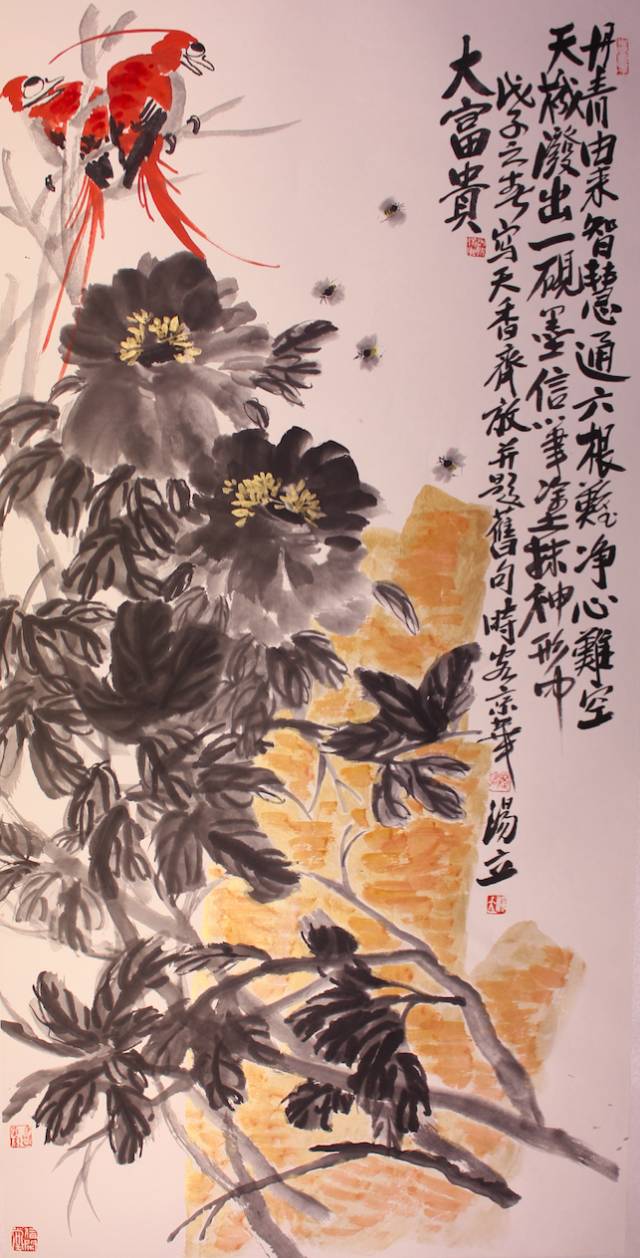 丹青由来智慧通六根雖净心難空
天機潑出一硯墨信筆塗抹神形中
戊子之春寫天香齊放并題舊句時客京華 湯立
大富貴